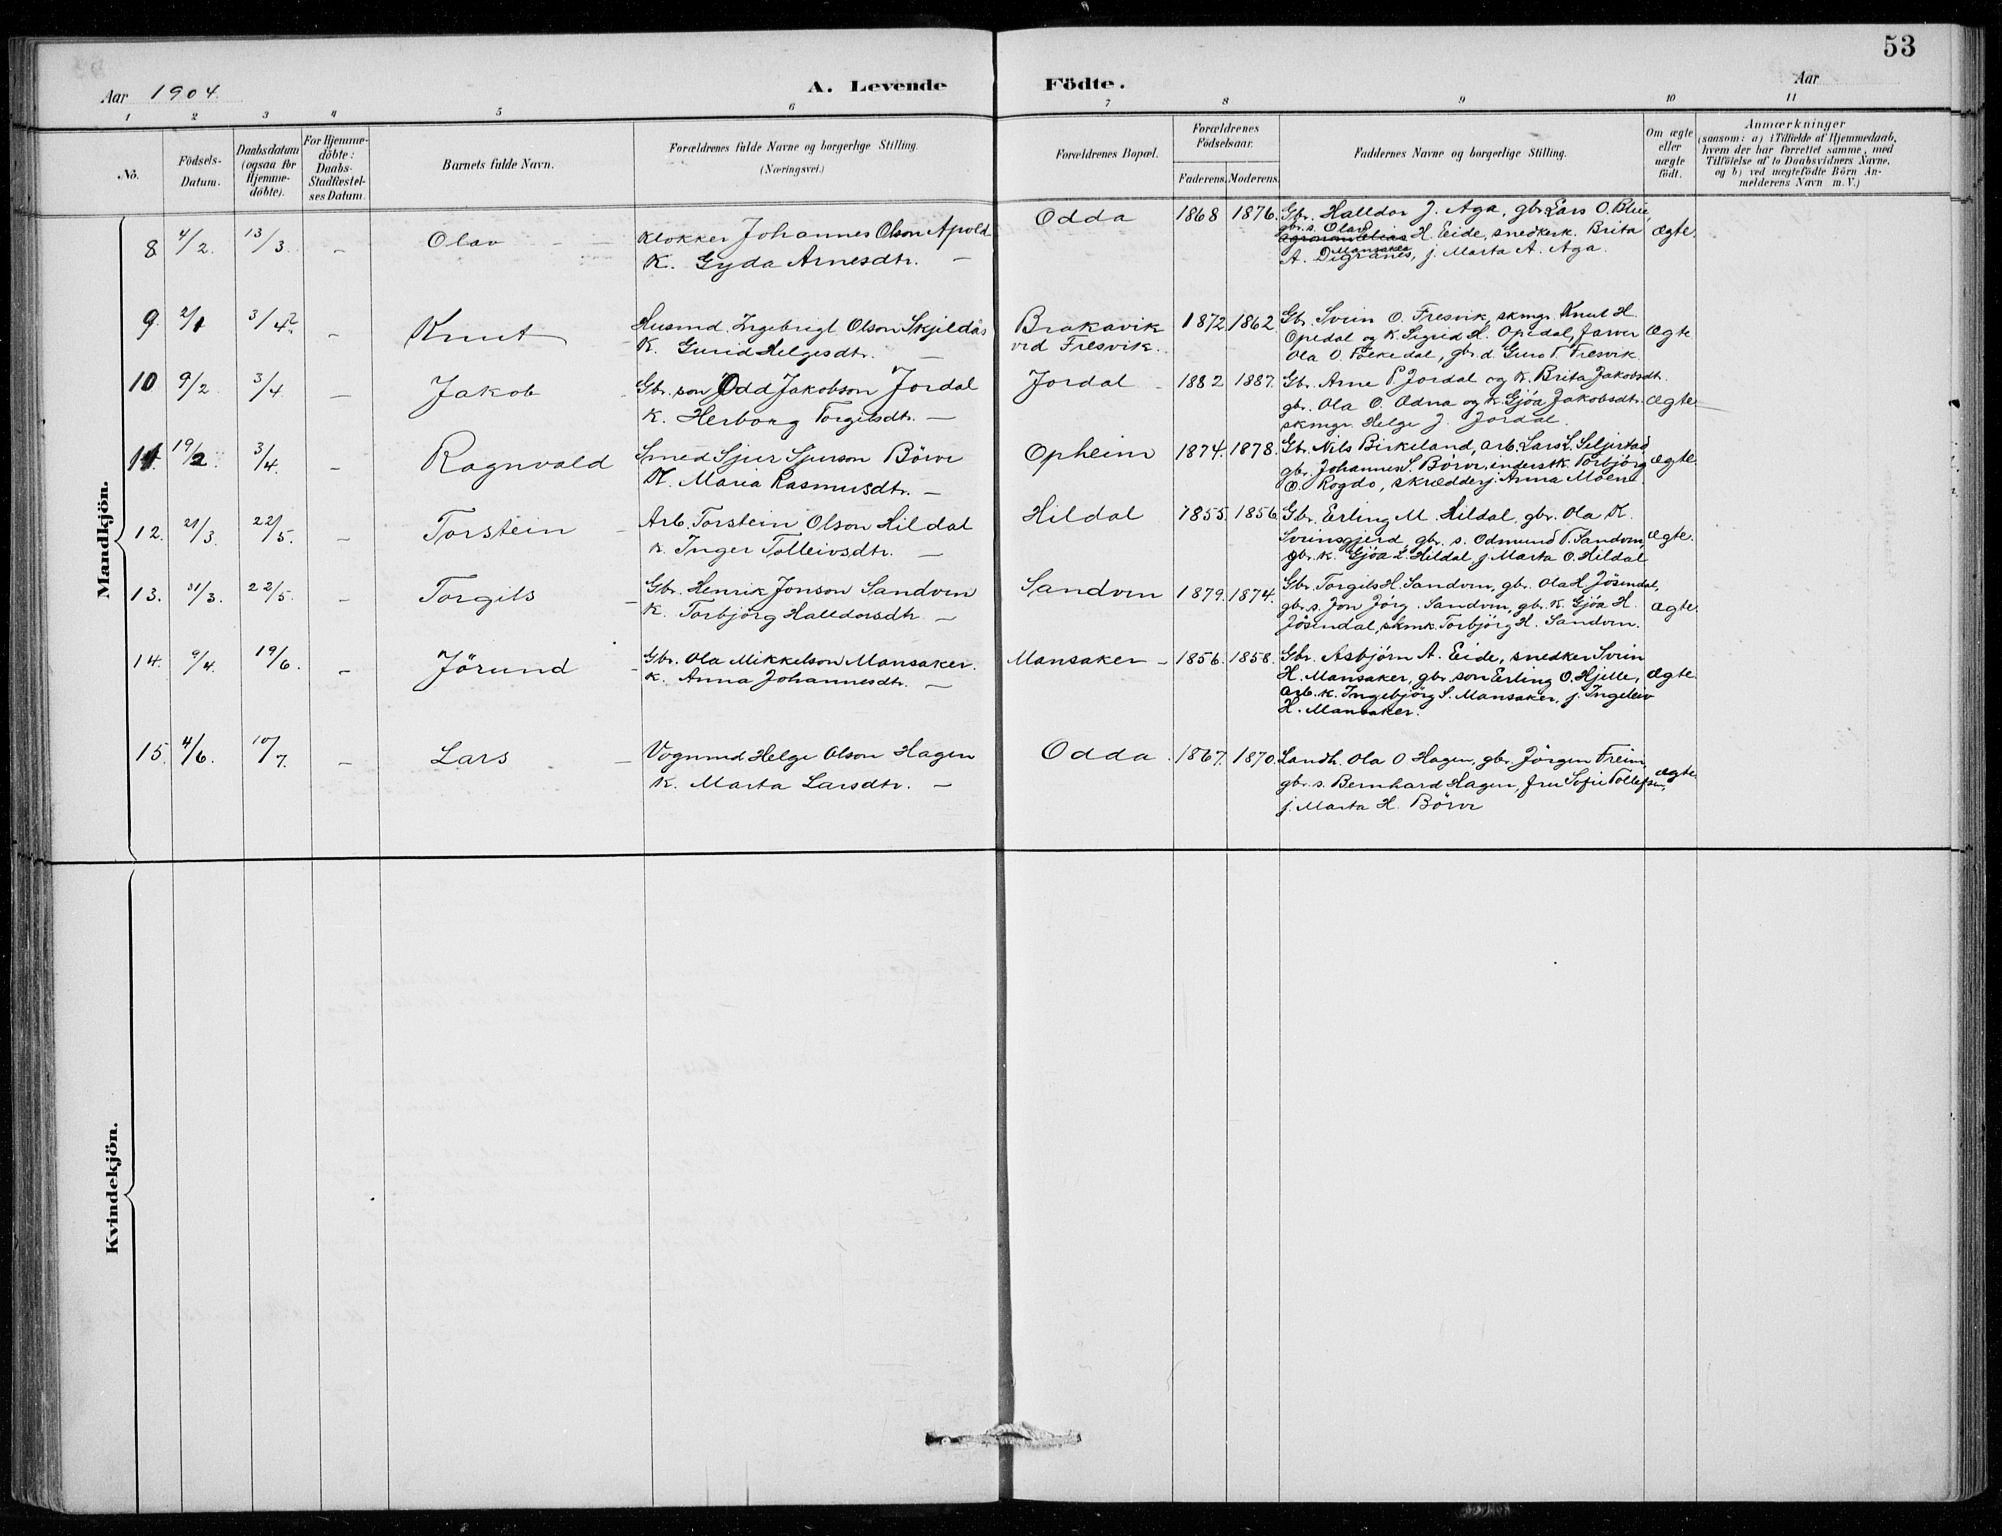 53
Aar 1904.
A. Levende Födte.
Aar
1 2 3 4 5 6 7 8 9 10 11
No.
Födsels-Datum.
Daabsdatum (ogsaa for Hjemme-döbte).
For Hjemme-döbte: Daabs-Stadfæstel-ses Datum.
Barnets fulde Navn.
Forældrenes fulde Navne og borgerlige Stilling.
(Næringsvei.)
Forældrenes Bopæl.
Forældrenes Födselsaar.
Faderens. Moderens.
Faddernes Navne og borgerlige Stilling.
Om ægte eller uægte födt.
Anmærkninger
(saasom: a) i Tilfælde af Hjemmedaab,
hvem der har forrettet samme, med
Tilföielse af to Daabsvidners Navne,
og b) ved uægtefödte Börn An-
melderens Navn m. V.)
Mandkjön.
8 4/2 13/3 – Olav
Klokker Johannes Olson Apold
K. Gyda Arnesdtr. –
Odda 1868 1876.
Gbr. Halldor J. Aga, gbr. Lars O. Bleie,
gbr. s. Olav
agronom Elias H. Eide, snedkerk. Brita
Mansaker
A. Digranes, j. Marta A. Aga.
Ægte.
9. 2/1 3/4 – Knut
Husmd. Ingebrigt Olson Skjildås
K. Gurid Helgesdtr. –
Brakavik
ved Fresvik.
1872 1862
Gbr. Svein O. Fresvik, skmgr. Knut H.
Opedal og K. Sigrid H. Opedal, farver
Ola O. Folkedal, gbr. d. Guro T. Fresvik.
Ægte
10 9/2. 3/4 – Jakob
Gbr. son Odd Jakobson Jordal
K. Herborg Torgilsdtr. –
Jordal 1882 1887.
Gbr. Arne P. Jordal og K. Brita Jakobsdtr.
gbr. Ola O. Odna og K. Gjöa Jakobsdtr.
skmgr. Helge J. Jordal.
Ægte
11. 19/2 3/4. – Ragnvald
Smed Sjur Sjurson Börve
K. Maria Rasmusdtr. –
Opheim 1874. 1878.
Gbr. Nils Birkeland, arb. Lars L. Seljestad
gbr. Johannes S. Börve, inderstk. Torbjörg
O. Rogdo, skrædderj. Anna Moene.
Ægte.
12. 21/3. 22/5. – Torstein
Arb. Torstein Olson Hildal
K. Inger Tolleivsdtr. –
Hildal 1855. 1856.
Gbr. Erling M. Hildal, gbr. Ola K.
Sveinsgjerd, gbr. s. Odmund T. Sandven,
gbr. K. Gjöa L. Hildal, j. Marta O. Hildal
Ægte.
13. 31/3. 22/5. – Torgils
Gbr. Henrik Jonson Sandven
K. Torbjörg Halldorsdtr. –
Sandven 1879. 1874.
Gbr. Torgils H. Sandven, gbr. Ola H. Jösendal,
gbr. s. Jon Jörg. Sandven, gbr. K. Gjöa H.
Jösendal, skmk. Torbjörg H. Sandven.
Ægte.
14. 9/4. 19/6. – Jörund
Gbr. Ola Mikkelson Mansaker.
K. Anna Johannesdtr. –
Mansaker – 1856. 1858.
Gbr. Asbjörn A. Eide, snedker Svein
H. Mansaker, gbr. son Erling O. Hjelle,
arb. K. Ingebjörg S. Mansaker, j. Ingeleiv
H. Mansaker.
Ægte.
15. 4/6. 10/7. – Lars
Vognmd Helge Olson Hagen
K. Marta Larsdtr. –
Odda 1867. 1870.
Landh. Ola O Hagen, gbr. Jörgen Freim,
gbr. s. Bernhard Hagen, fru Sofie Tollefsen,
j. Marta H. Börve
Ægte
Kvindekjön.